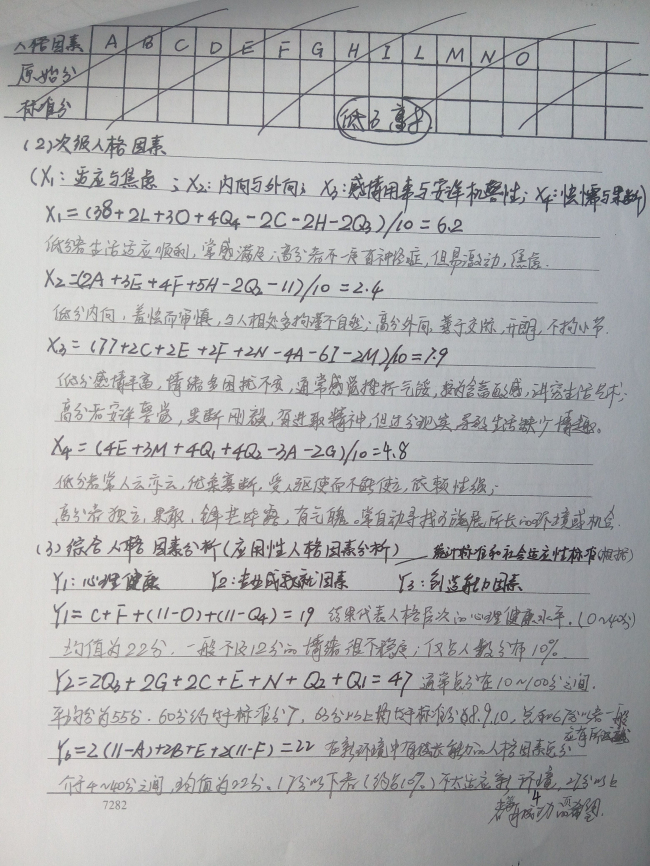 人格因素 A B C D E F G H I L M N O
原始分
标准分
低3高8
(2)次级人格因素
(X1:适应与焦虑;X2:内向与外向;X3:感情用事与安详机警性;X4:怯懦与果断)
X1=(38+2L+3O+4Q4-2C-2H-2Q3)/10=6.2
低分者生活适应顺利,常感满足;高分者不一定有神经症,但易激动,焦虑.
X2=(2A+3E+4F+5H-2Q2-11)/10=2.4
低分内向,羞怯而审慎,与人相处多拘谨不自然;高分外向,善于交际,开朗,不拘小节.
X3=(77+2C+2E+2F+2N-4A-6I-2M)/10=7.9
低分感情丰富,情绪多困扰不安,通常感觉挫折气馁,含蓄敏感,讲究生活艺术;
高分者安详警觉,果断刚毅,有进取精神,但过分现实,导致生活缺少情趣。
X4=(4E+3M+4Q1+4Q2-3A-2G)/10=4.8
低分者常人云亦云,优柔寡断,受人驱使而不能独立,依赖性强;
高分者独立,果敢,锋芒毕露,有气魄。常自动寻找可施展所长的环境或机会.
(3)综合人格因素分析(应用性人格因素分析) 统计标准和社会适应性标准(根据)
Y1:心理健康 Y2:专业成就因素 Y3:创造能力因素
Y1=C+F+(11-O)+(11-Q4)=19 结果代表人格层次的心理健康水平.(0~40分)
均值为22分.一般不及12分的情绪很不稳定;仅占人数分布10%.
Y2=2Q3+2G+2C+E+N+Q2+Q1=47 通常总分在10~100分之间.
平均分为55分.60分约等于标准分7,63分以上约等于标准分8.9.10,总和67分以者一般
应有所成就
Y6=2(11-A)+2B+E+2(11-F)=22 在新环境中有成长能力的人格因素总分
介于4~40分之间,均值为22分.17分以下者(约占10%)不太适应新环境,27分以上
者有成功的希望.
7282
4